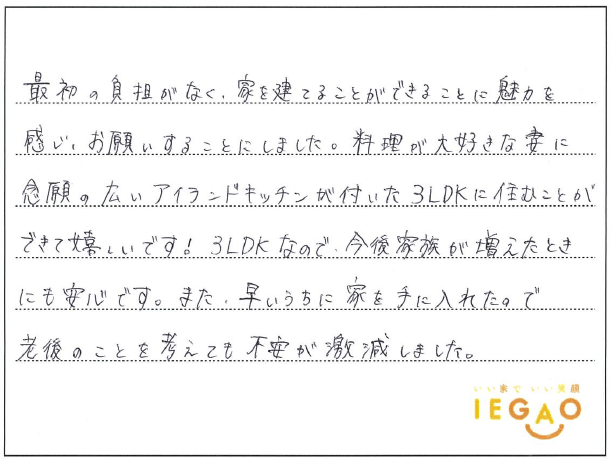 最初の負担がなく、家を建てることができることに魅力を
感じ、お願いすることにしました。料理が大好きな妻に
念願の広いアイランドキッチンが付いた3LDKに住むことが
できて嬉しいです!3LDKなので、今後家族が増えたとき
にも安心です。また、早いうちに家を手に入れたので
老後のことを考えても不安が激減しました。
いい家でいい笑顔
IEGAO